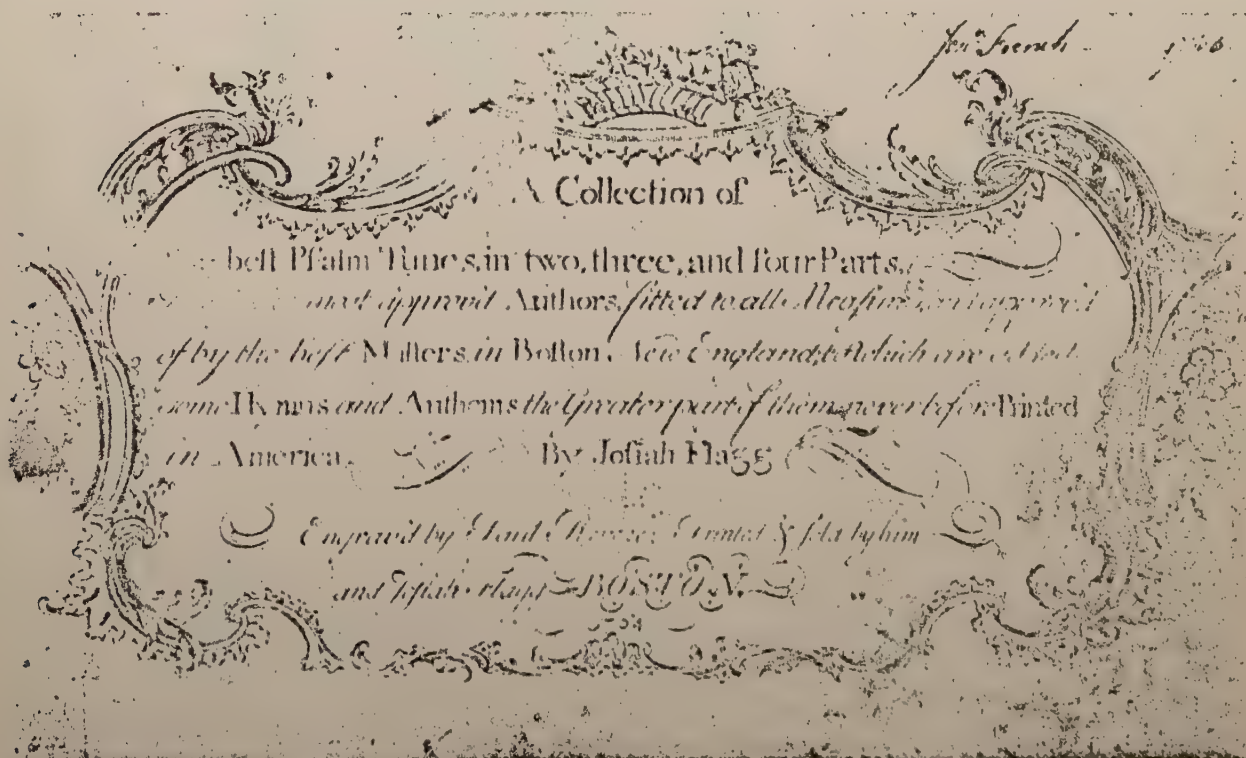 French
A Collection of
best Psalm Tunes, in two, three, and four Parts,
most approv'd Authors, fitted to all Measures,
of by the best Masters, in Boston, New England; to which are added
some Hymns and Anthems the Greater part of them never before Printed
in America.
By Josiah Flagg
Engrav'd by Paul Revere: Printed & sold by him
and Josiah Flagg BOSTON.